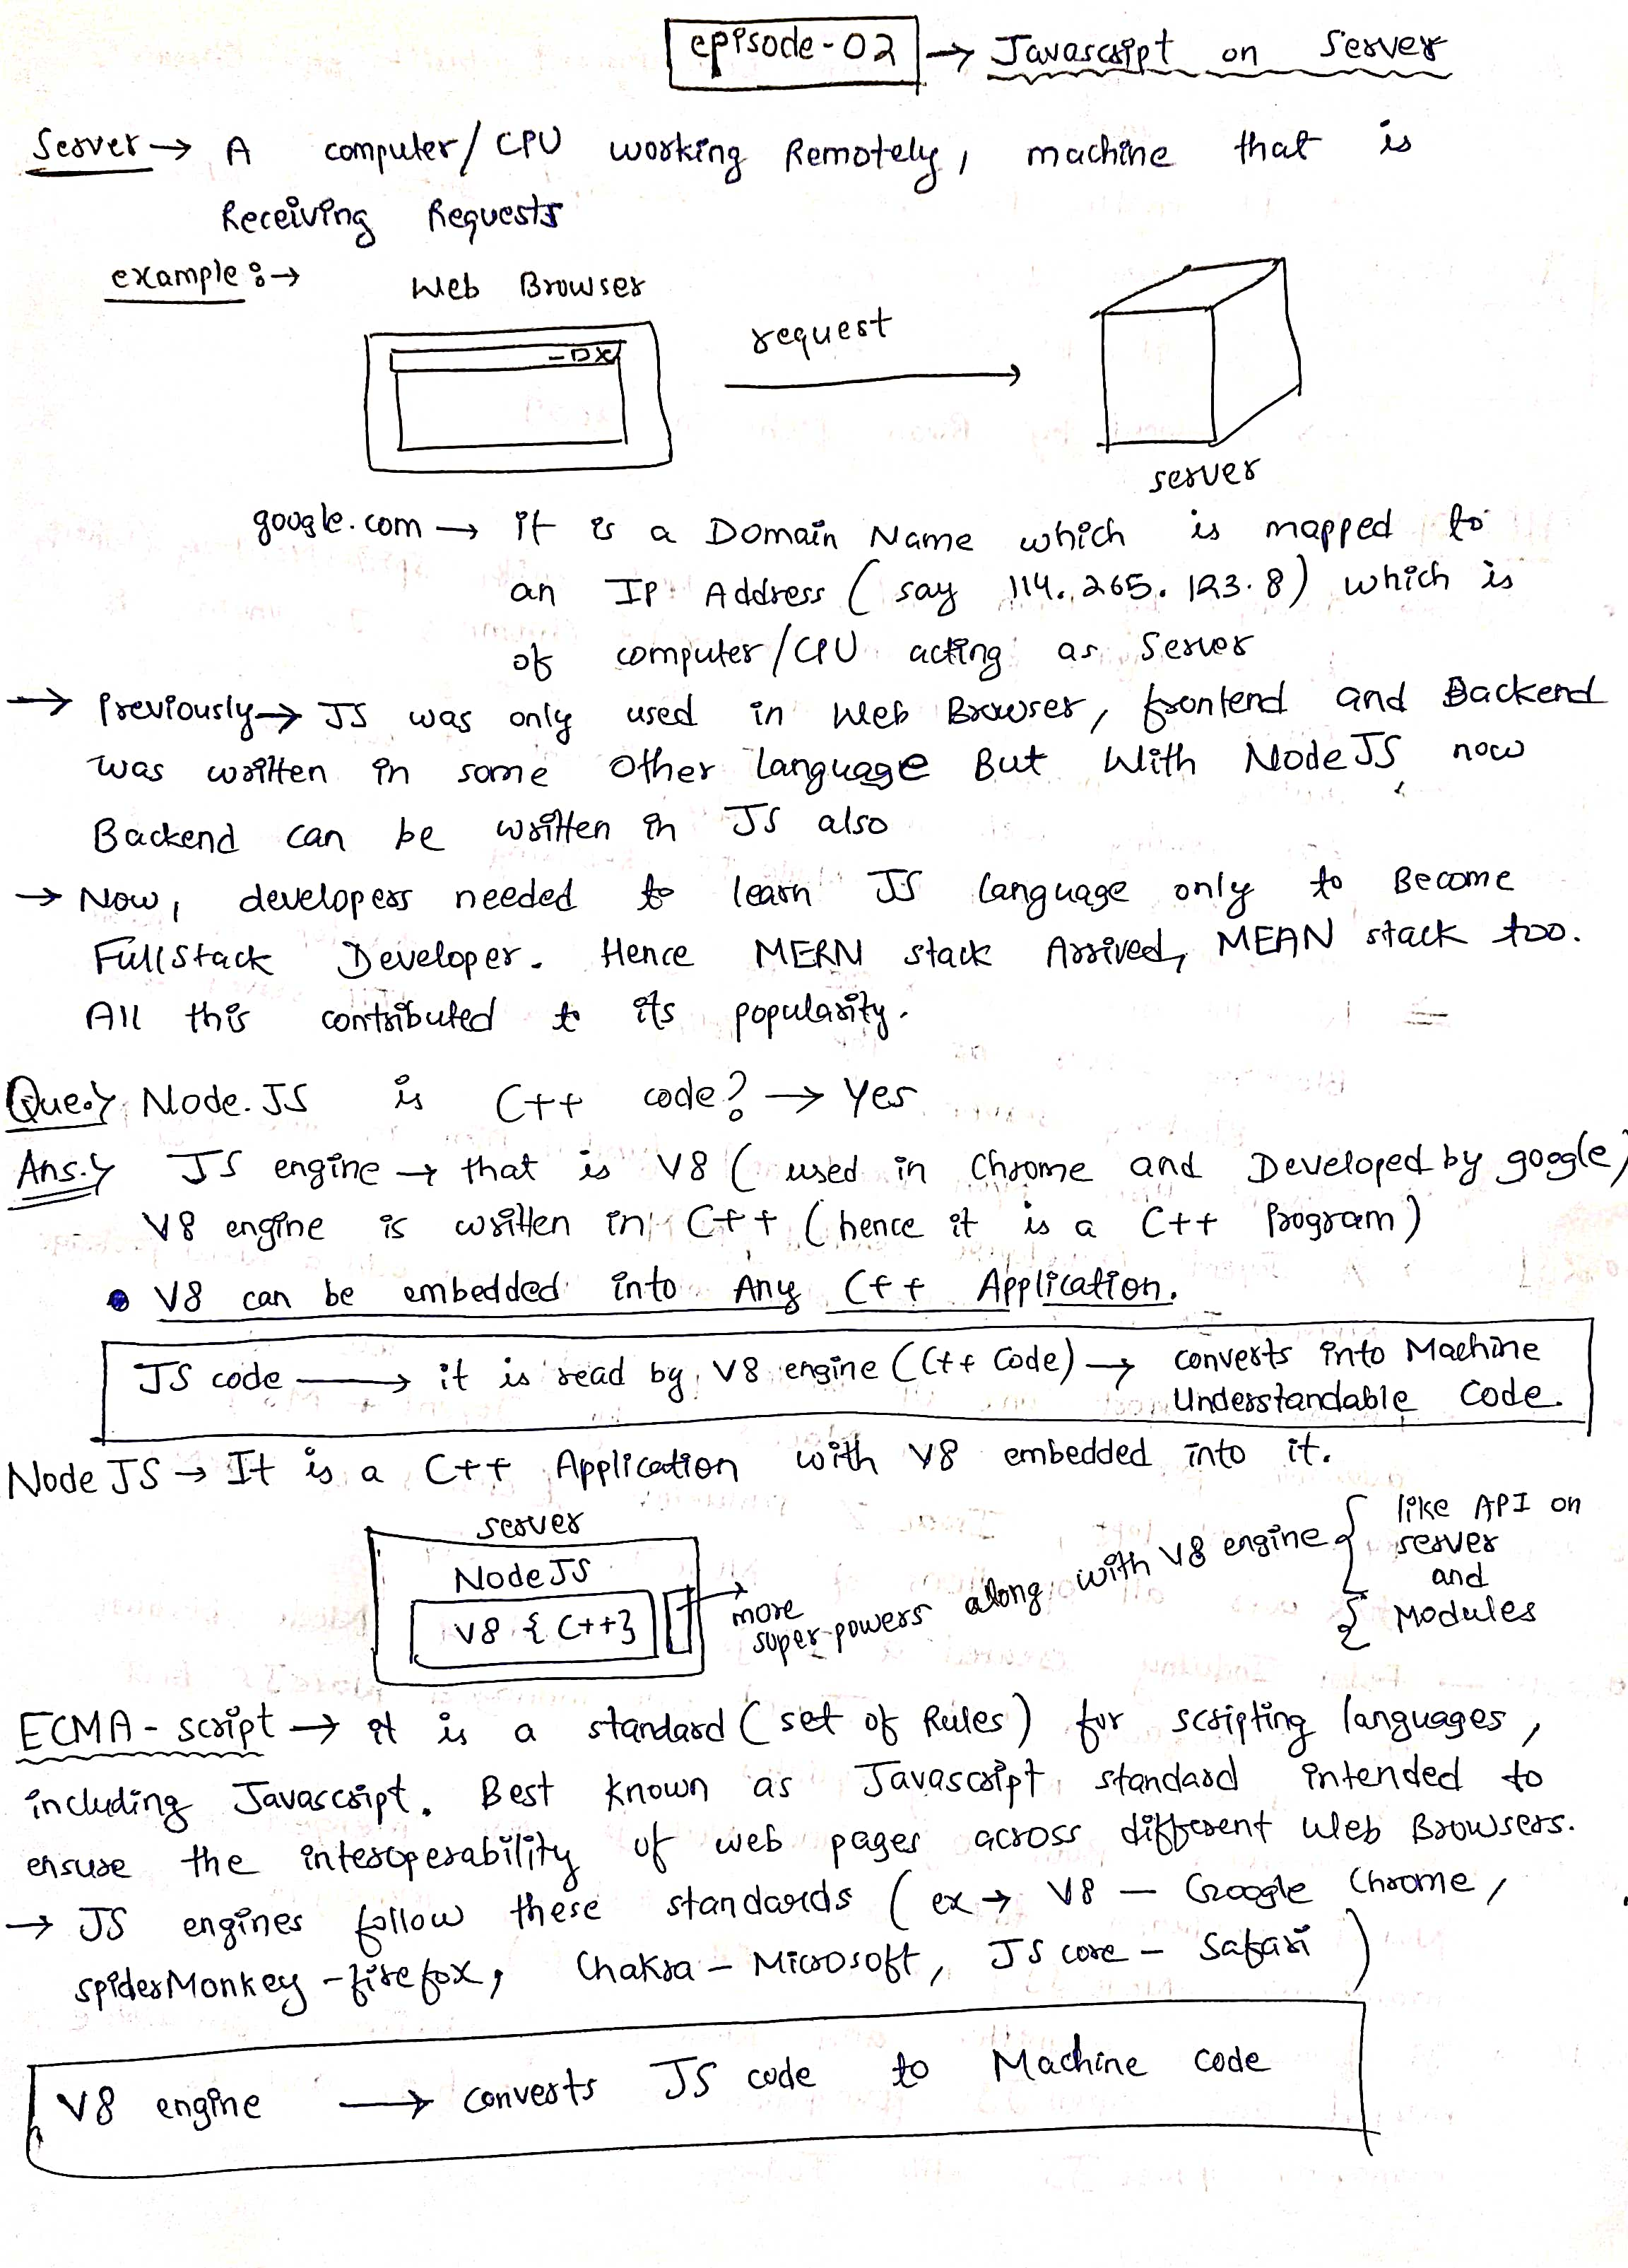 episode-02 → Javascript on Server
Server → A computer/CPU working Remotely, machine that is
Receiving Requests
example :→ Web Browser
request
server
google.com → it is a Domain Name which is mapped to
an IP Address (say 114.265.123.8) which is
of computer/CPU acting as Server
→ Previously → JS was only used in Web Browser, frontend and Backend
was written in some other language But With NodeJS now
Backend can be written in JS also
→ Now, developers needed to learn JS language only to Become
FullStack Developer. Hence MERN stack Arrived, MEAN stack too.
All this contributed to its popularity.
Query Node.JS is C++ code? → Yes
Ans.y JS engine → that is V8 (used in Chrome and Developed by google)
V8 engine is written in C++ (hence it is a C++ Program)
• V8 can be embedded into Any C++ Application.
JS code → it is read by V8 engine (C++ Code) → converts into Machine
Understandable Code.
Node JS → It is a C++ Application with V8 embedded into it.
server
NodeJS
V8 { C++}
more
super-powers along with V8 engine { like API on
server
and
{ Modules
ECMA-script → it is a standard (set of Rules) for scripting languages,
including Javascript. Best known as Javascript standard intended to
ensure the interoperability of web pages across different Web Browsers.
→ JS engines follow these standards (ex → V8 — Google Chrome,
spiderMonkey - firefox, Chakra - Microsoft, JS core - Safari)
V8 engine → converts JS code to Machine code